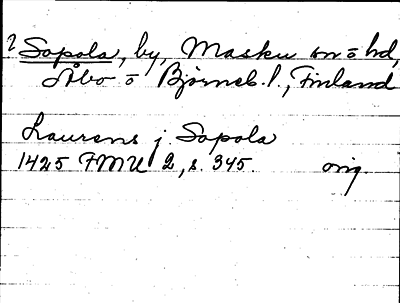 ? Sopola, by, Masku sn o hd,
Åbo o Björneb. l., Finland
Laurens j. Sopola
1425 FMU 2, s. 345. orig.